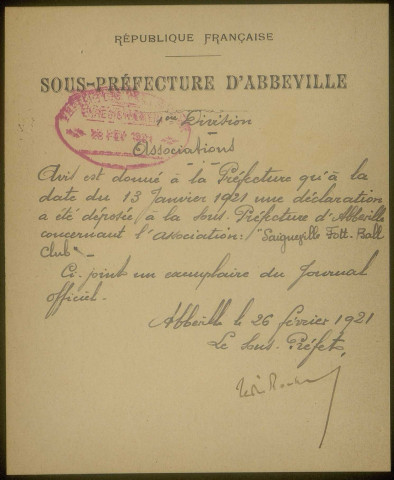 RÉPUBLIQUE FRANÇAISE
SOUS-PRÉFECTURE D'ABBEVILLE
1ère Division
Associations
Avis est donné à la Préfecture qu'à la
date du 13 Janvier 1921 une déclaration
a été déposée à la Sous-Préfecture d'Abbeville
concernant l'association: "Saigneville Fott-Ball
Club".-
Ci-joint un exemplaire du Journal
officiel.-
Abbeville le 26 février 1921
Le Sous-Préfet,